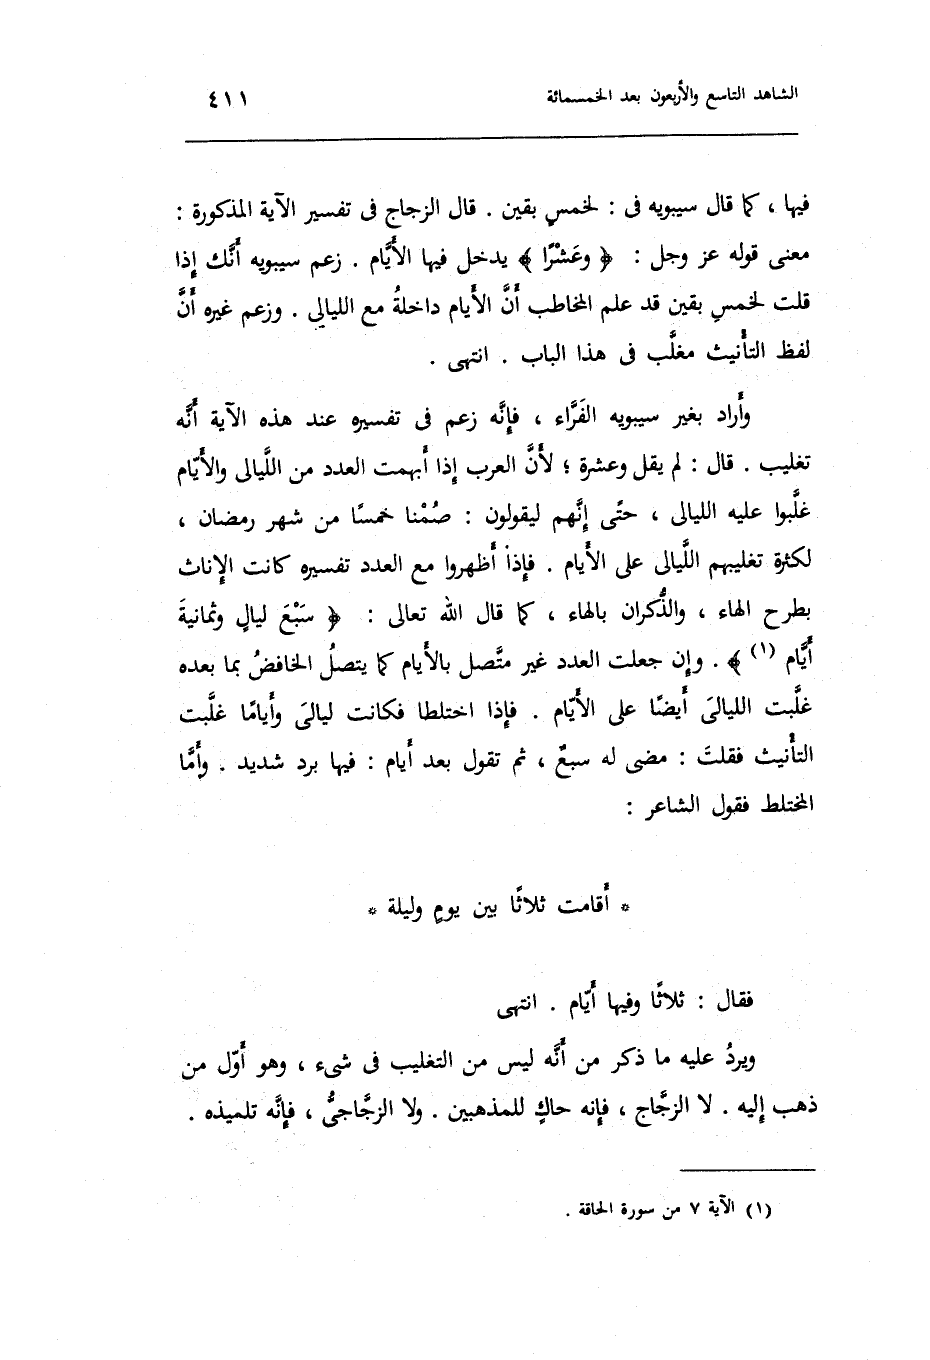 الشاهد التاسع والأربعون بعد الخمسمائة ٤١١
فيها ، كما قال سيبويه فى : لخمسٍ بقين . قال الزجاج فى تفسير الآية المذكورة :
معنى قوله عز وجل : ﴿ وعَشْرًا ﴾ يدخل فيها الأَيَّام . زعم سيبويه أَنَّك إِذا
قلت لخمسٍ بقين قد علم المخاطب أَنَّ الأَيام داخلةُ مع الليالى . وزعم غيره أَنَّ
لفظ التأْنيث مغلَّب فى هذا الباب . انتهى .
وأَراد بغير سيبويه الفَرَّاء ، فإِنَّه زعم فى تفسيره عند هذه الآية أَنَّه
تغليب . قال : لم يقل وعشرة ؛ لأَنَّ العرب إِذا أَبهمت العدد من اللَّيالى والأَيّام
غلَّبوا عليه الليالى ، حتَّى إِنَّهم ليقولون : صُمْنا خمسًا من شهر رمضان ،
لكثرة تغليبهم اللَّيالى على الأَيام . فإِذا أَظهروا مع العدد تفسيره كانت الإِناث
بطرح الهاء ، والذُّكران بالهاء ، كما قال الله تعالى : ﴿ سَبْعَ ليالٍ وثمانيةَ
أَيَّام (١) ﴾ . وإِن جعلت العدد غير متَّصل بالأَيام كما يتصلُ الخافضُ بما بعده
غلَّبت الليالىَ أَيضًا على الأَيّام . فإِذا اختلطا فكانت ليالىَ وأَيامًا غلَّبت
التأْنيث فقلتَ : مضى له سبعٌ ، ثم تقول بعد أَيام : فيها برد شديد . وأَمَّا
المختلط فقول الشاعر :
* أَقامت ثلاثًا بين يومٍ وليلة *
فقال : ثلاثًا وفيها أَيّام . انتهى
ويردُ عليه ما ذكر من أَنَّه ليس من التغليب فى شىء ، وهو أَوّل من
ذهب إِليه . لا الزجَّاج ، فإِنه حاكٍ للمذهبين . ولا الزجَّاجىُّ ، فإِنَّه تلميذه .
(١) الآية ٧ من سورة الحاقة .